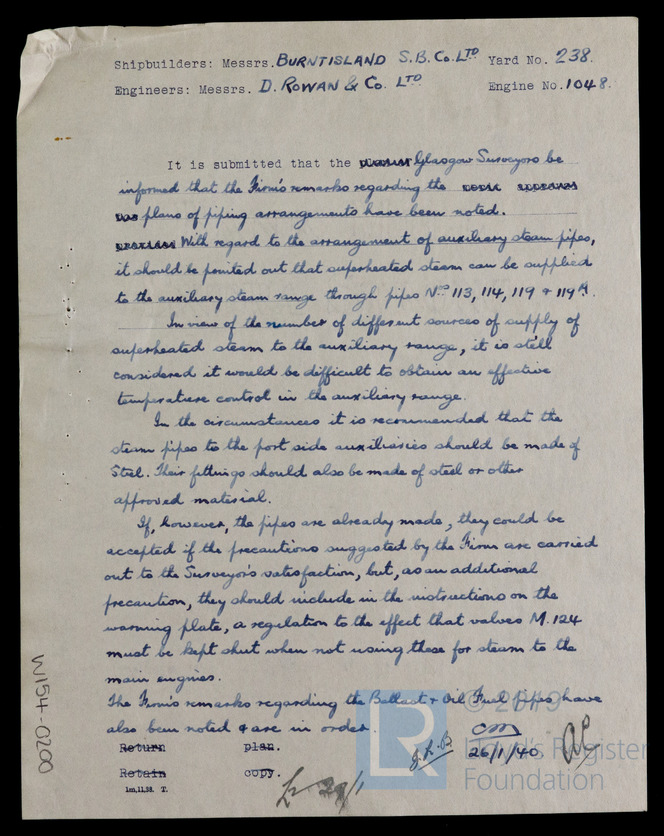 Shipbuilders: Messrs. BURNTISLAND S.B. Co. LTD Yard No. 238.
Engineers: Messrs. D. ROWAN & Co. LTD Engine No. 1048.
It is submitted that the Glasgow Surveyors be
informed that the Firm's remarks regarding the
plans of piping arrangements have been noted.
With regard to the arrangement of auxiliary steam pipes,
it should be pointed out that superheated steam can be supplied
to the auxiliary steam range through pipes Nos 113, 114, 119 & 119A.
In view of the number of different sources of supply of
superheated steam to the auxiliary range, it is still
considered it would be difficult to obtain an effective
temperature control in the auxiliary range.
In the circumstances it is recommended that the
steam pipes to the port side auxiliaries should be made of
Steel. Their fittings should also be made of steel or other
approved material.
If, however, the pipes are already made, they could be
accepted if the precautions suggested by the Firm are carried
out to the Surveyor's satisfaction, but, as an additional
precaution, they should include in the instructions on the
warming plate, a regulation to the effect that valves M.124
must be kept shut when not using these for steam to the
main engines.
The Firm's remarks regarding the Ballast & Oil Fuel pipes have
also been noted & are in order.
Return plan.
Retain copy.
1m,11,38. T.
26/1/40
W154-0200
© 2019
LR Lloyd's Register
Foundation